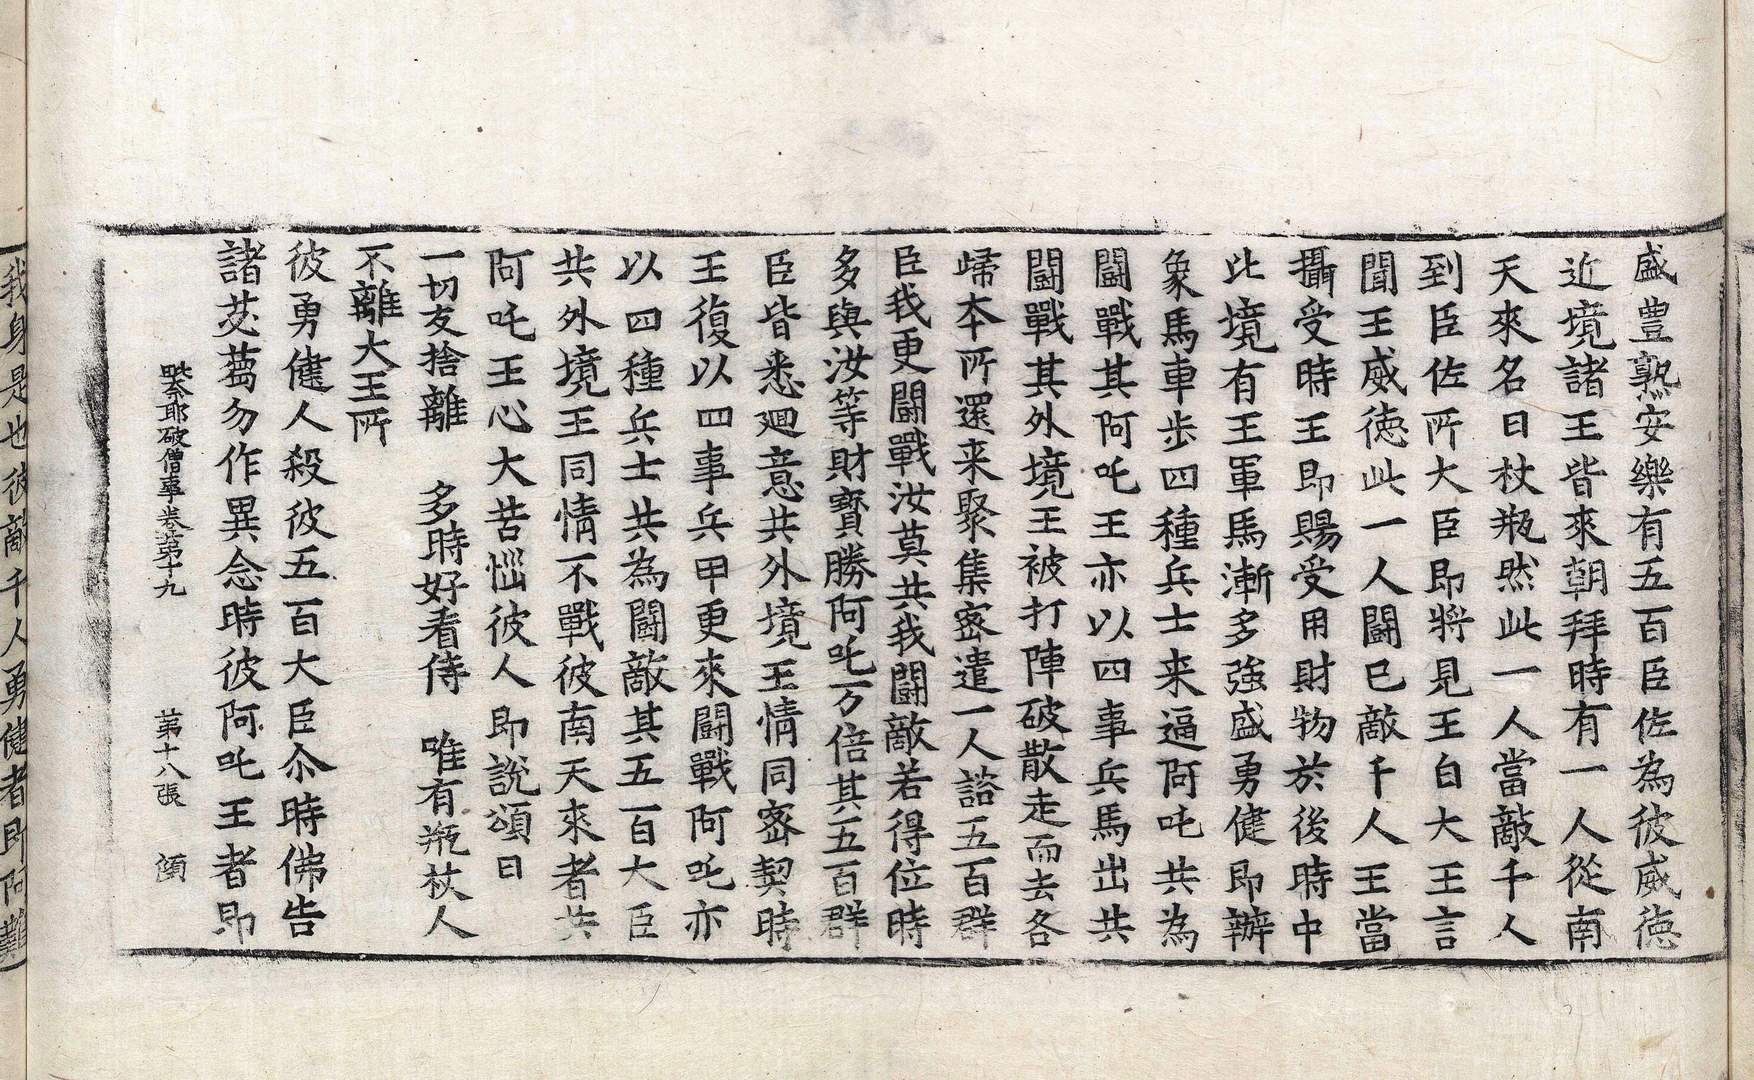 盛豊熟安樂有五百臣佐為彼威徳
近境諸王皆來朝拜時有一人從南
天來名曰杖瓶然此一人當敵千人
到臣佐所大臣即將見王白大王言
聞王威徳此一人闘已敵千人王當
攝受時王即賜受用財物於後時中
此境有王軍馬漸多強盛勇健即辦
象馬車歩四種兵士来逼阿吒共為
闘戰其阿吒王亦以四事兵馬出共
闘戰其外境王被打陣破散走而去各
歸本所還来聚集密遣一人諮五百群
臣我更闘戰汝莫共我闘敵若得位時
多與汝等財寳勝阿吒万倍其五百群
臣皆悉廻意共外境王情同密契時
王復以四事兵甲更來闘戰阿吒亦
以四種兵士共為闘敵其五百大臣
共外境王同情不戰彼南天來者共
阿吒王心大苦惱彼人即說頌曰
一切友捨離　多時好看侍　唯有瓶杖人
不離大王所
彼勇健人殺彼五百大臣尒時佛告
諸苾蒭勿作異念時彼阿吒王者即
毗奈耶破僧事卷第十九　第十八張　頌
我身是也彼敵千人勇健者即阿難